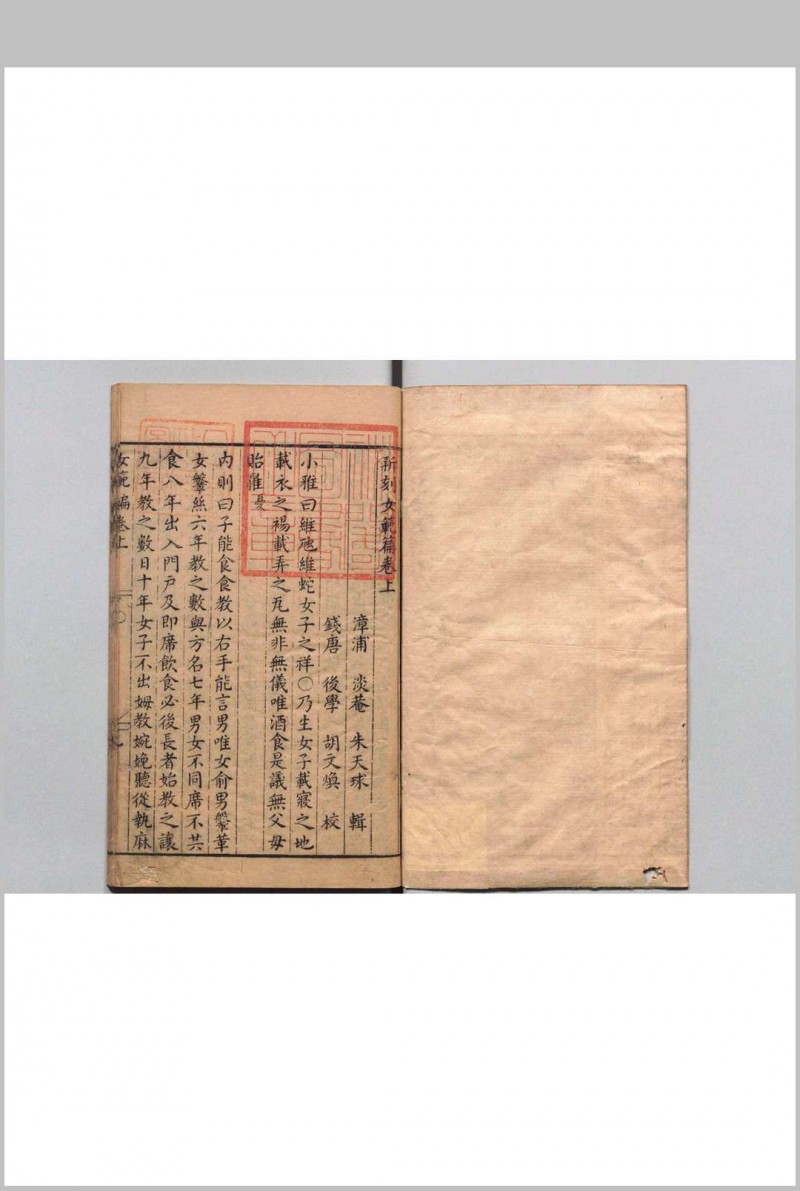 新刻女範篇卷上
漳浦 淡菴 朱天球 輯
錢唐 後學 胡文煥 校
小雅曰維虺維蛇女子之祥〇乃生女子載寢之地
載衣之裼載弄之瓦無非無儀唯酒食是議無父母
貽罹憂
內則曰子能食食教以右手能言男唯女俞男鞶革
女鞶絲六年教之數與方名七年男女不同席不共
食八年出入門戶及即席飲食必後長者始教之讓
九年教之數日十年女子不出姆教婉娩聽從執麻
女範編卷上